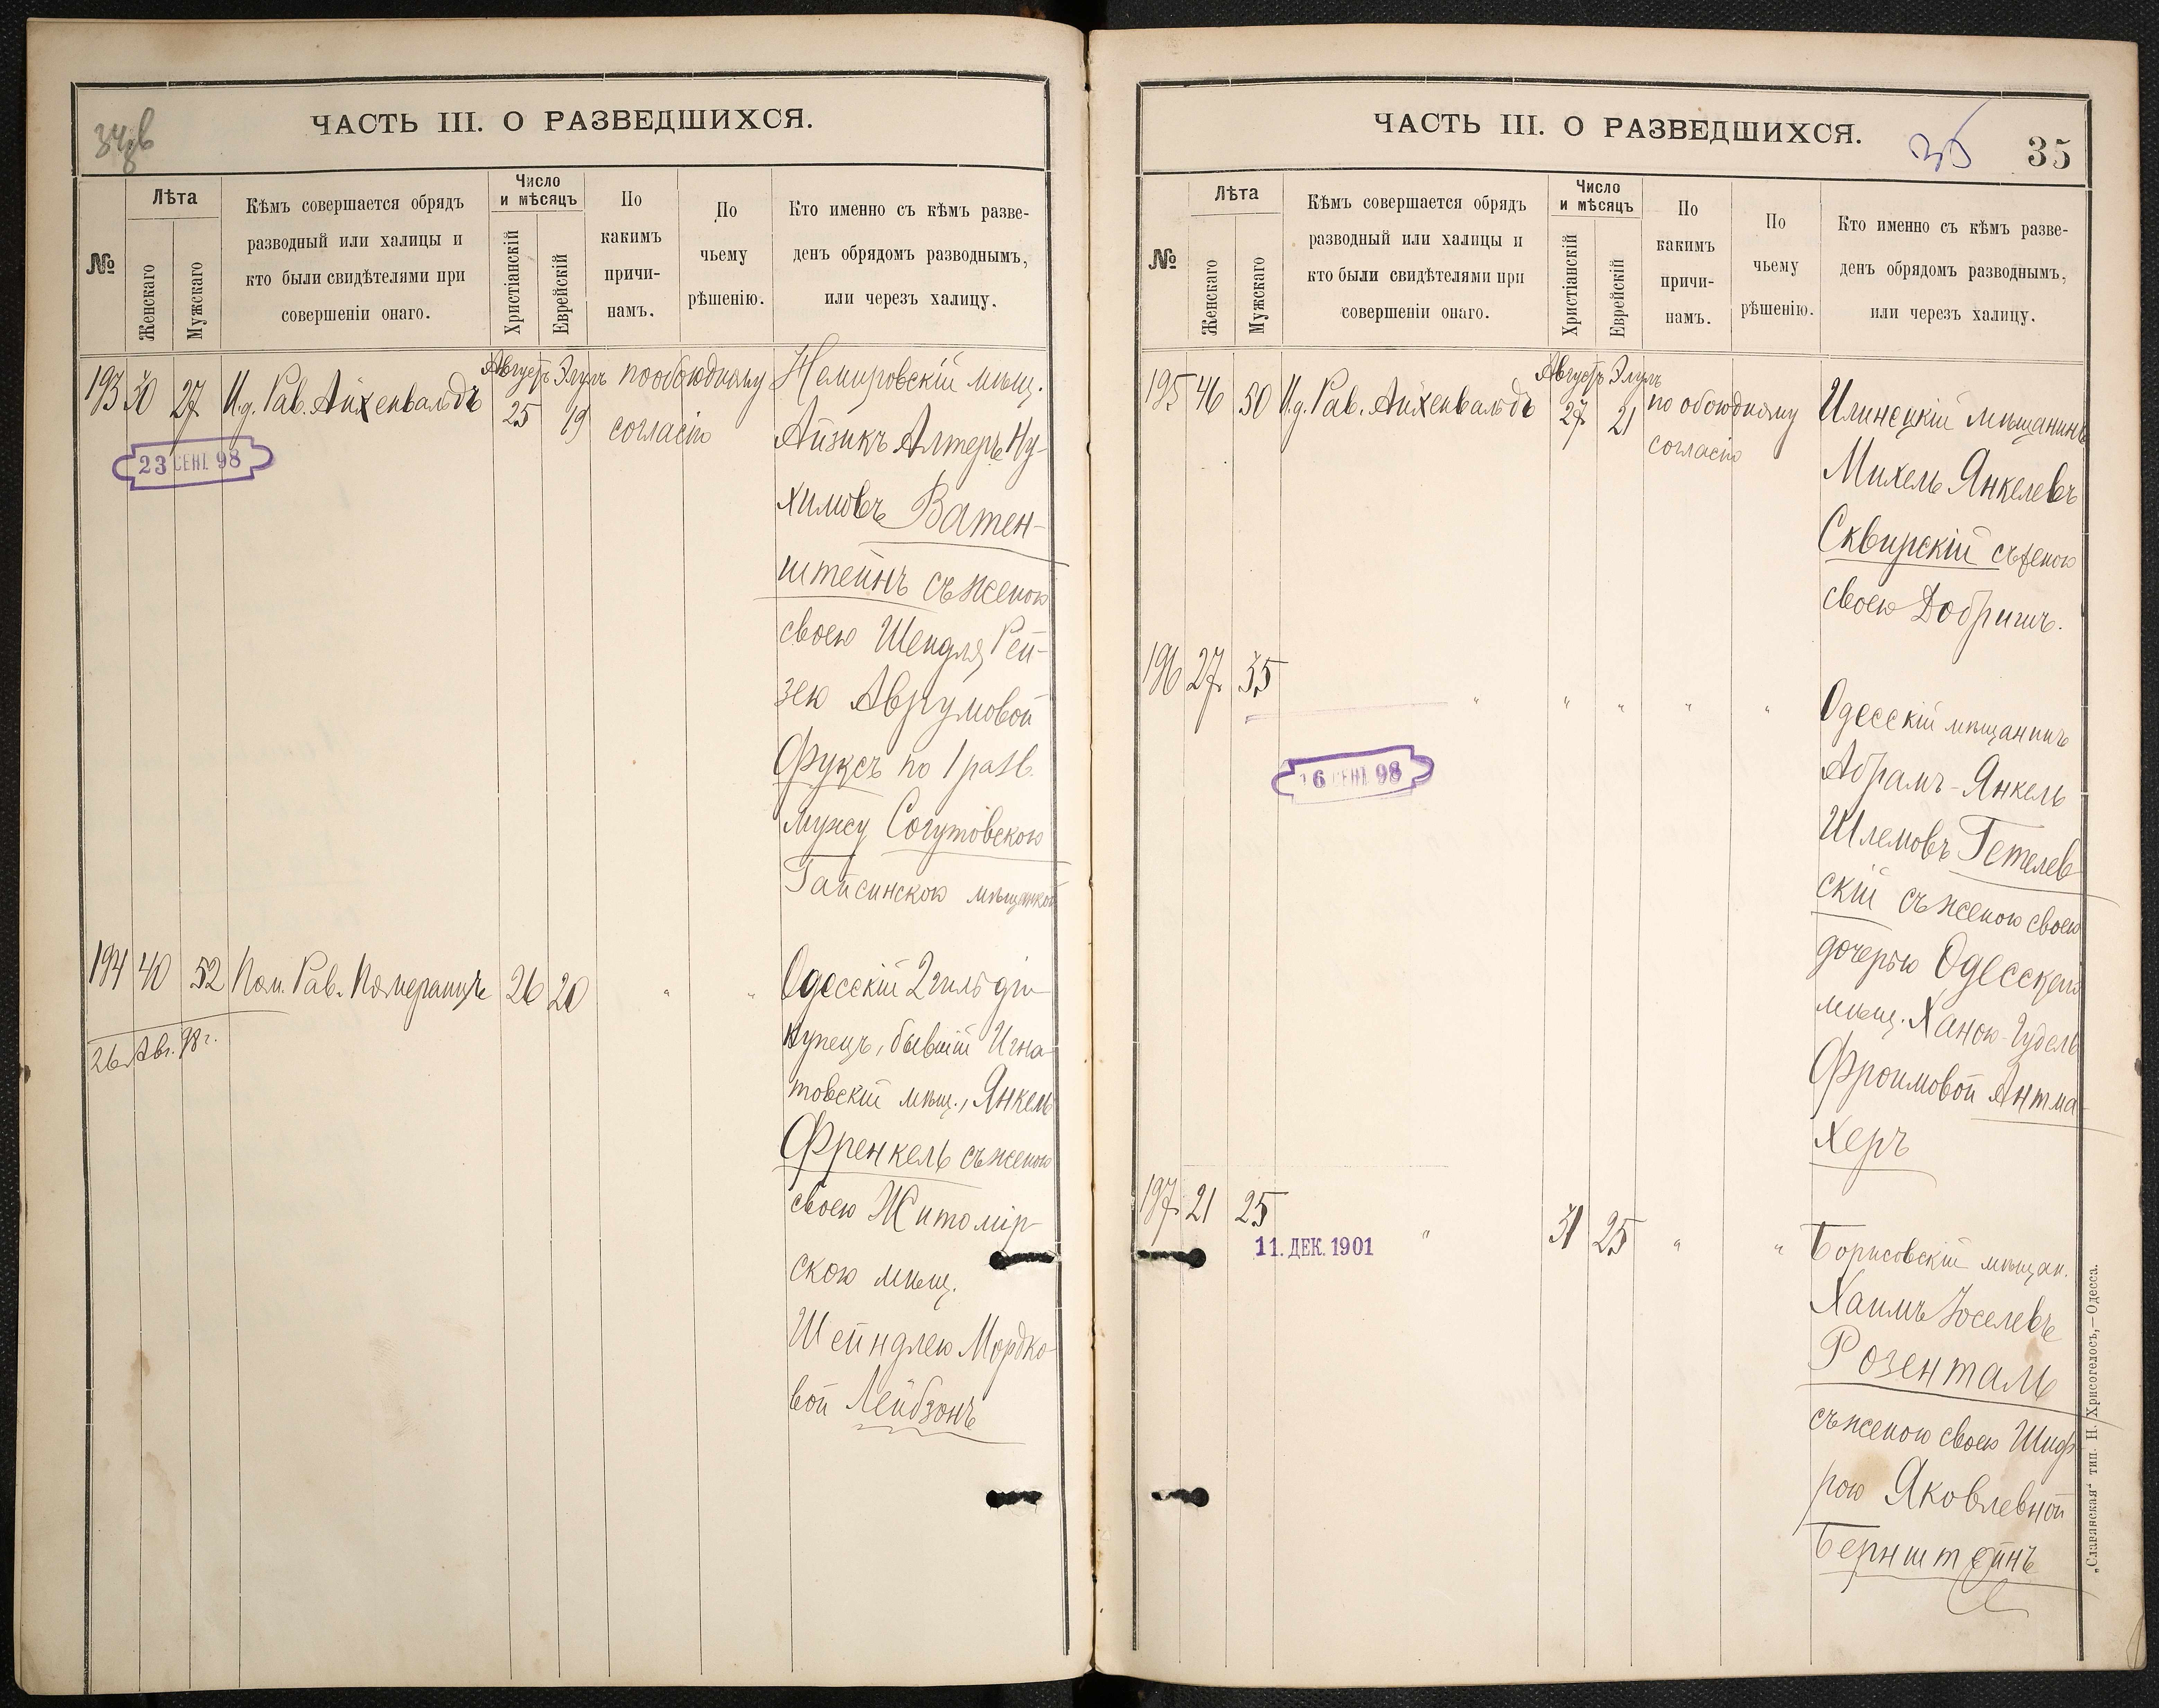 34 об
ЧАСТЬ III. О РАЗВЕДШИХСЯ.
№
Лѣта
Женскаго
Мужскаго
Кѣмъ совершается обрядъ
разводный или халицы и
кто были свидѣтелями при
совершеніи онаго.
Число
и мѣсяцъ
Христіанскій
Еврейскій
По
какимъ
причи-
намъ.
По
чьему
рѣшенію.
Кто именно съ кѣмъ разве-
денъ обрядомъ разводнымъ,
или черезъ халицу.
193 30 27 И.д. Рав. Айхенвальдъ
Августъ 25
Элулъ 19
по обоюдному
согласію
23 СЕНТ 98
Немировскій мѣщ.
Айзикъ Алтеръ Ну-
химовъ Ватен-
штейнъ съ женою
своею Шендля Рей-
зею Аврумовой
Фуксъ по 1 разв.
мужу Согутовскою
Гайсинскою мѣщанкой
194 40 52 Пом. Рав. Померанцъ 26 20 " "
26 Авг. 98 г.
Одесскій 2 гильдіи
купецъ, бывшій Игна-
товскій мѣщ., Янкель
Френкель съ женою
своею Житомір-
скою мѣщ.
Шейндлею Мордко-
вой Лейбзонъ
ЧАСТЬ III. О РАЗВЕДШИХСЯ.
35
35
№
Лѣта
Женскаго
Мужскаго
Кѣмъ совершается обрядъ
разводный или халицы и
кто были свидѣтелями при
совершеніи онаго.
Число
и мѣсяцъ
Христіанскій
Еврейскій
По
какимъ
причи-
намъ.
По
чьему
рѣшенію.
Кто именно съ кѣмъ разве-
денъ обрядомъ разводнымъ,
или черезъ халицу.
195 46 50 И.д. Рав. Айхенвальдъ
Августъ 27
Элулъ 21
по обоюдному
согласію
Илинецкій мѣщанинъ
Михель Янкелевъ
Сквирскій съ женою
своею Добришъ.
196 27 35 " " " " "
16 СЕНТ 98
Одесскій мѣщанинъ
Абрамъ-Янкель
Шлемовъ Гетелев-
скій съ женою своею
дочерью Одесскаго
мѣщ. Ханою-Гудель
Фроимовой Антма-
херъ
197 21 25 " 31 25 " "
11. ДЕК. 1901
Борисовскій мѣщан.
Хаимъ Іоселевъ
Розенталь
съ женою своею Шиф-
рою Яковлевной
Бернштейнъ
„Славянская“ тип. Н. Хрисогелосъ,—Одесса.